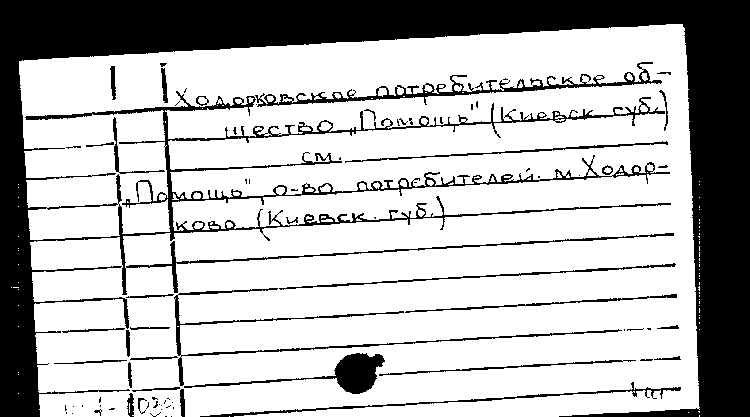 Ходорковское потребительское об-
щество „Помощь" (Киевск. губ.)
см.
„Помощь", о-во потребителей м. Ходор-
ково (Киевск. губ.)